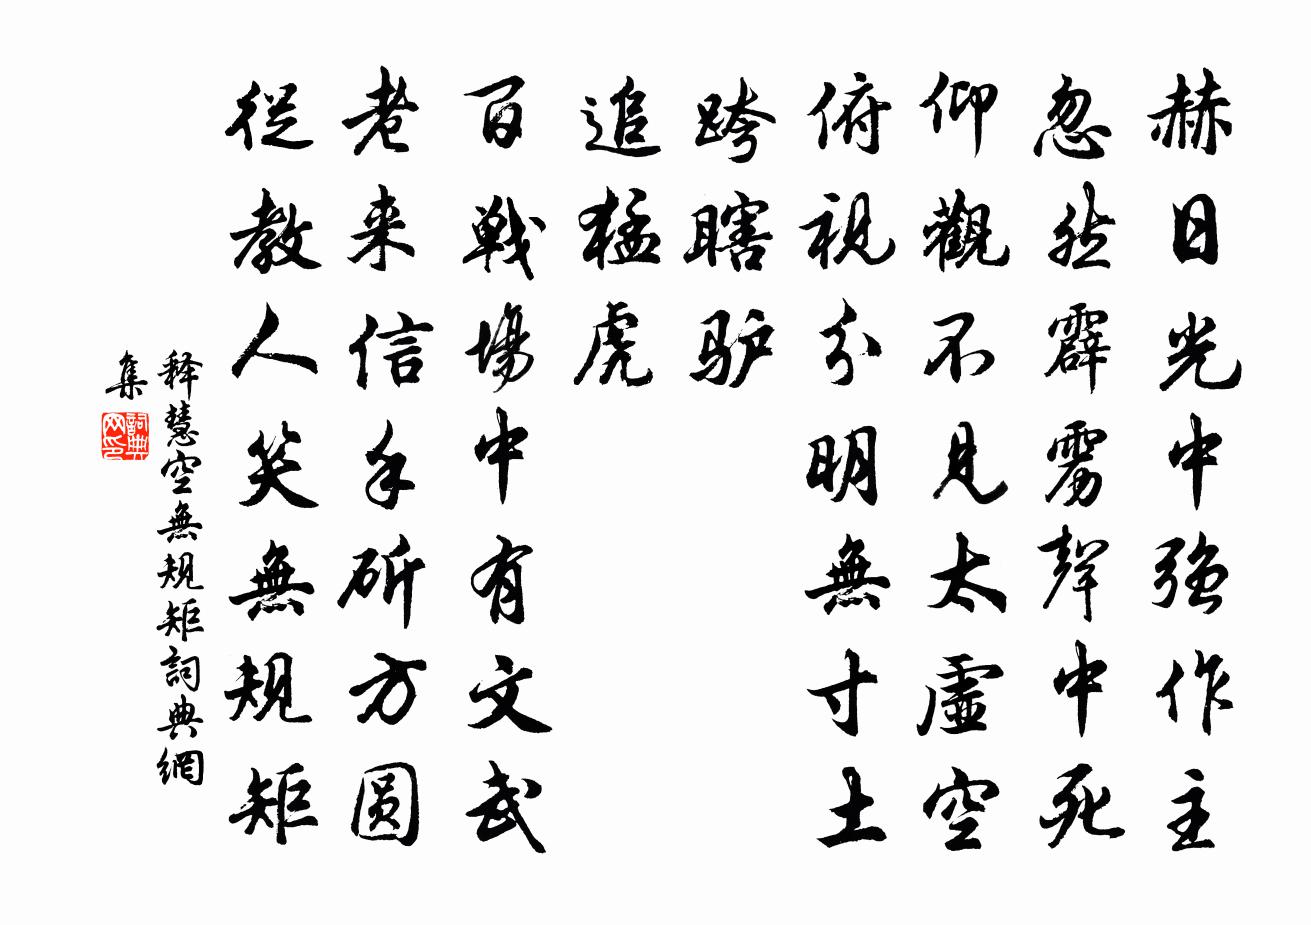 赫日光中強作主
忽然霹雳聲中死
仰觀不見太虛空
俯視分明無寸土
跨瞎驴
追猛虎
百戰場中有文武
老来信手斫方圆
從教人笑無規矩
释慧空無規矩詞典網
集
詞典
网印